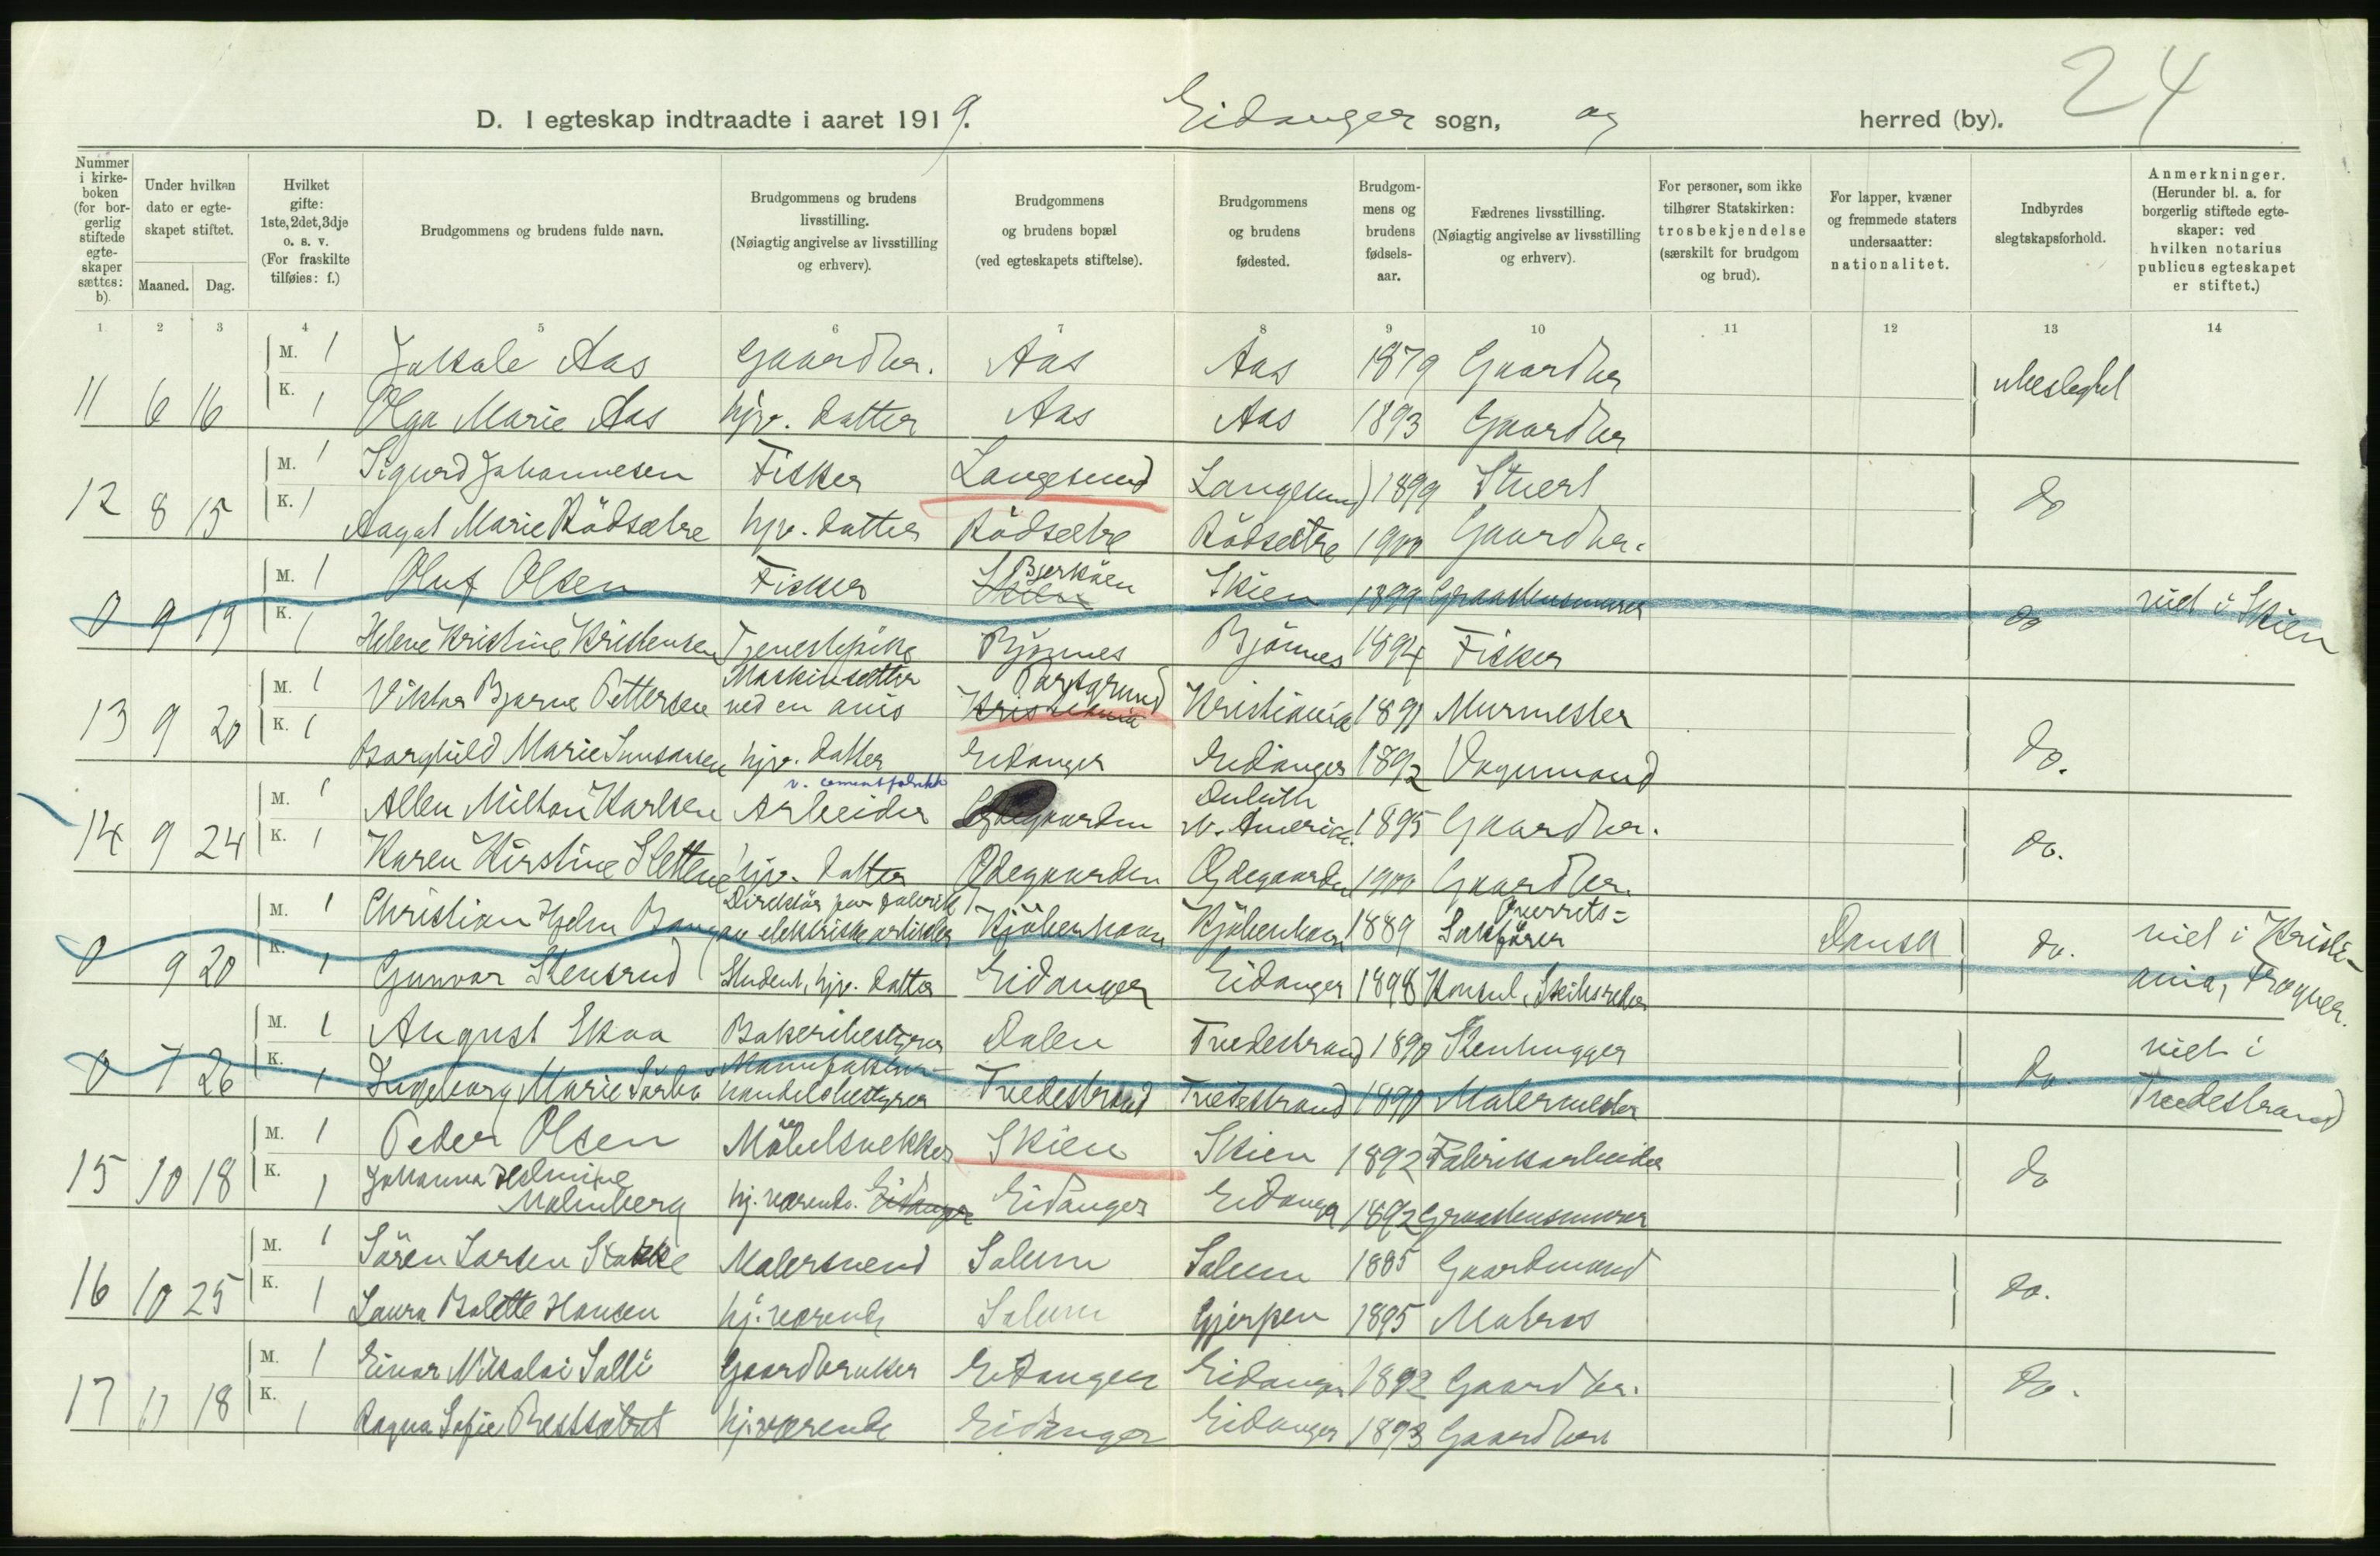 24
D. I egteskap indtraadte i aaret 1919. Eidanger sogn, og herred (by).
Nummer i kirkeboken (for borgerlig stiftede egteskaper sættes: b).
Under hvilken dato er egteskapet stiftet.
Maaned. Dag.
Hvilket gifte: 1ste, 2det, 3dje o. s. v. (For fraskilte tilføies: f.)
Brudgommens og brudens fulde navn.
Brudgommens og brudens livsstilling. (Nøiagtig angivelse av livsstilling og erhverv).
Brudgommens og brudens bopæl (ved egteskapets stiftelse).
Brudgommens og brudens fødested.
Brudgommens og brudens fødselsaar.
Fædrenes livsstilling. (Nøiagtig angivelse av livsstilling og erhverv).
For personer, som ikke tilhører Statskirken: trosbekjendelse (særskilt for brudgom og brud).
For lapper, kvæner og fremmede staters undersaatter: nationalitet.
Indbyrdes slegtskapsforhold.
Anmerkninger. (Herunder bl. a. for borgerlig stiftede egteskaper: ved hvilken notarius publicus egteskapet er stiftet.)
1 2 3 4 5 6 7 8 9 10 11 12 13 14
M. 1 Aas Gaardbr. Aas Aas 1879 Gaardbr ubeslegtet
11 6 16 K. 1 Olga Marie Aas hjv. datter Aas Aas 1893 Gaardbr
M. 1 Sigurd Johannesen Fisker Langesund Langesund 1899 Stuert do
12 8 15 K. 1 Aagot Marie Rödsætre hjv. datter Rödsætre Rödsætre 1900 Gaardbr.
M. 1 Oluf Olsen Fisker Bjerköen Skien 1899 Graastensmurer do viet i Skien
0 9 19 K. 1 Helene Kristine Kristensen Tjenestepike Bjönnes Bjönnes 1894 Fisker
M. 1 Viktor Bjarne Pettersen Maskinsætter ved en avis Kristiania Porsgrund Kristiania 1891 Murmester do.
13 9 20 K. 1 Borghild Marie hjv. datter Eidanger Eidanger 1892 Vognmand
M. 1 Allen Milton Karlsen Arbeider v. cementfabrikk Ødegaarden Duluth N. Amerika. 1895 Gaardbr. do.
14 9 24 K. 1 Karen Kirstine Slettene hjv. datter Ødegaarden Ødegaarden 1900 Gaardbr.
M. 1 Christian Hjelm Bang Direktör paa fabrik av elektriske artikler Kjöbenhavn Kjöbenhavn 1889 Overrets= Sakförer Dansk do. viet i Kristiania, Frogner.
0 9 20 K. 1 Gunvor Stensrud Student, hjv. datter Eidanger Eidanger 1898 Konsul, Skibsreder
M. 1 August Skaa Bakeribestyrer Dalen Tvedestrand 1890 Stenhugger do viet i Tvedestrand
0 7 26 K. 1 Ingeborg Marie Sørbö Manufaktur- handelsbestyrer Tvedestrand Tvedestrand 1890 Malermester
M. 1 Peder Olsen Möbelsnekker Skien Skien 1892 Fabrikarbeider do
15 10 18 K. 1 Johanna Helmine Malmberg hj. værende. Eidanger Eidanger Eidanger 1892 Graastensmurer
M. 1 Sören Larsen Stokke Malersvend Solum Solum 1885 Gaardmand do.
16 10 25 K. 1 Laura Bolette Hansen hj. værende Solum Gjerpen 1895 Matros
M. 1 Einar Nikolai Salli Gaardbruker Eidanger Eidanger 1892 Gaardbr. do.
17 11 18 K. 1 Ragna Sofie hj. værende Eidanger Eidanger 1893 Gaardbr